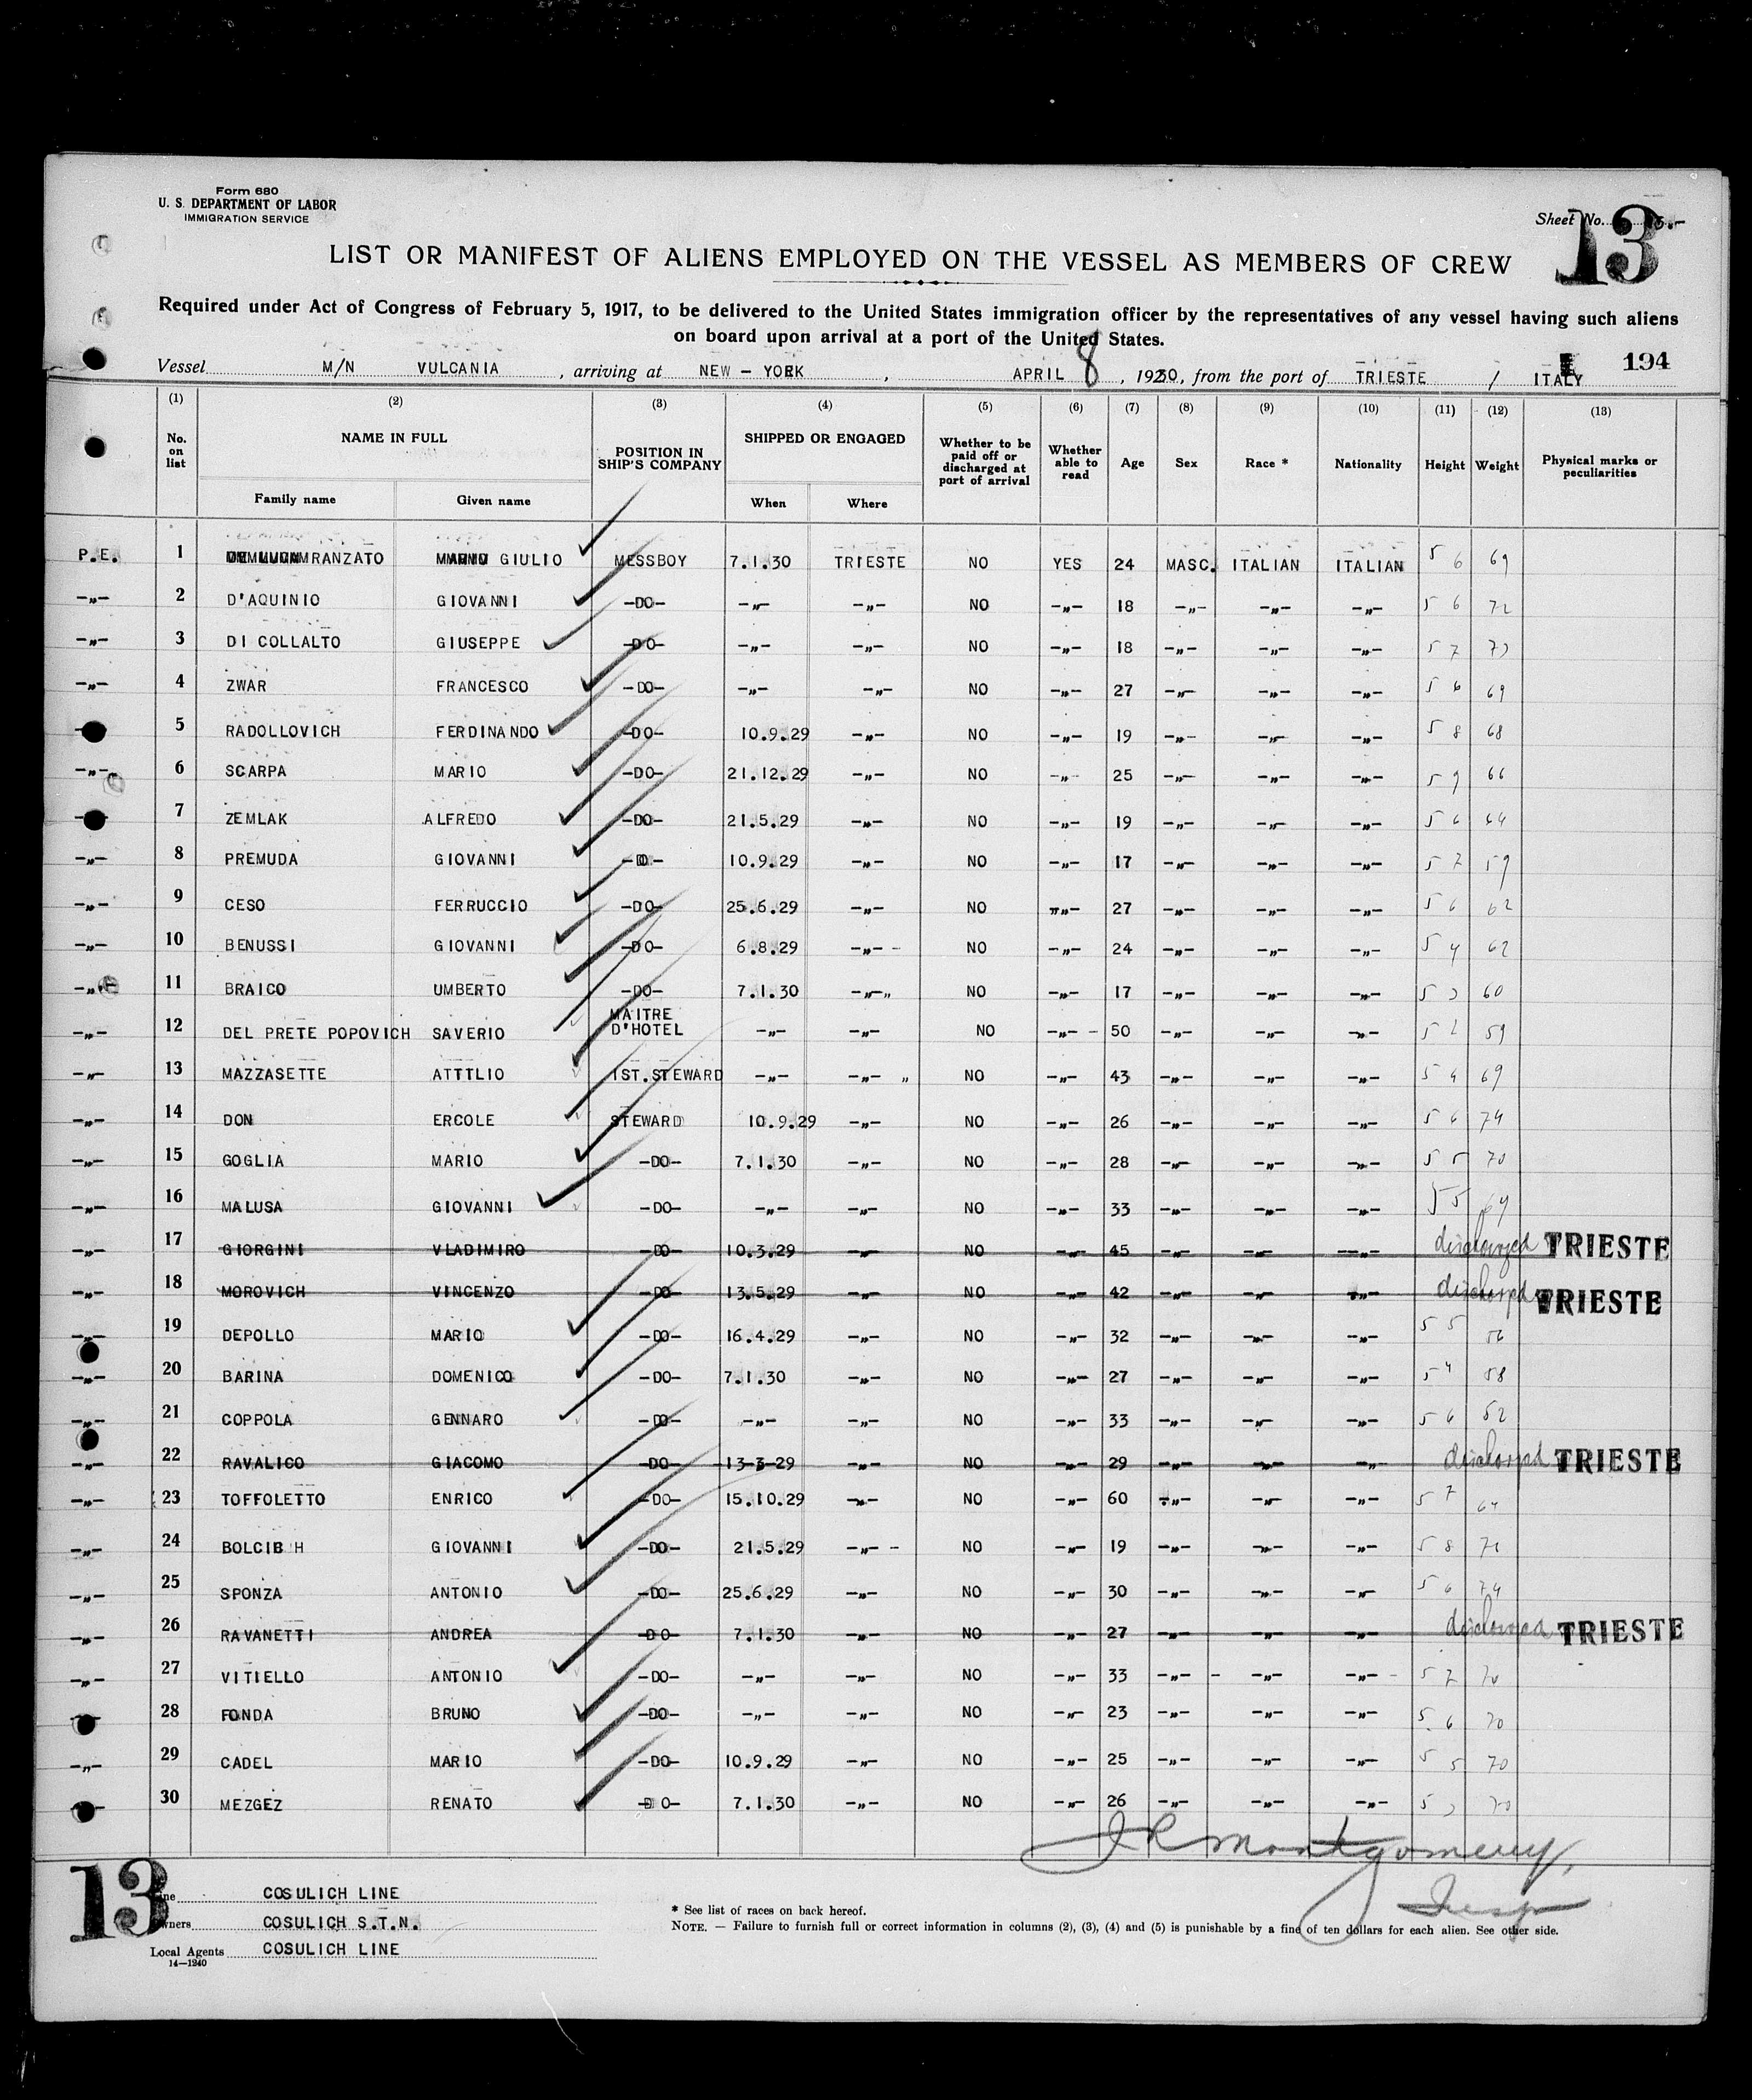 Form 680
U. S. DEPARTMENT OF LABOR
IMMIGRATION SERVICE
Sheet No.
13
LIST OR MANIFEST OF ALIENS EMPLOYED ON THE VESSEL AS MEMBERS OF CREW
Required under Act of Congress of February 5, 1917, to be delivered to the United States immigration officer by the representatives of any vessel having such aliens
on board upon arrival at a port of the United States.
Vessel M/N VULCANIA , arriving at NEW - YORK , APRIL 8 , 1930, from the port of TRIESTE / ITALY 194
(1) (2) (3) (4) (5) (6) (7) (8) (9) (10) (11) (12) (13)
No. on list NAME IN FULL Family name Given name POSITION IN SHIP'S COMPANY SHIPPED OR ENGAGED When Where Whether to be paid off or discharged at port of arrival Whether able to read Age Sex Race * Nationality Height Weight Physical marks or peculiarities
P.E. 1 RANZATO GIULIO MESSBOY 7.1.30 TRIESTE NO YES 24 MASC. ITALIAN ITALIAN 5 6 69
-"- 2 D'AQUINIO GIOVANNI -DO- -"- -"- NO -"- 18 -"- -"- -"- 5 6 72
-"- 3 DI COLLALTO GIUSEPPE -DO- -"- -"- NO -"- 18 -"- -"- -"- 5 7
-"- 4 ZWAR FRANCESCO -DO- -"- -"- NO -"- 27 -"- -"- -"- 5 6 69
5 RADOLLOVICH FERDINANDO -DO- 10.9.29 -"- NO -"- 19 -"- -"- -"- 5 8 68
-"- 6 SCARPA MARIO -DO- 21.12.29 -"- NO -"- 25 -"- -"- -"- 5 9 66
7 ZEMLAK ALFREDO -DO- 21.5.29 -"- NO -"- 19 -"- -"- -"- 5 6 64
-"- 8 PREMUDA GIOVANNI -DO- 10.9.29 -"- NO -"- 17 -"- -"- -"- 5 7 59
-"- 9 CESO FERRUCCIO -DO- 25.6.29 -"- NO -"- 27 -"- -"- -"- 5 6 62
-"- 10 BENUSSI GIOVANNI -DO- 6.8.29 -"- NO -"- 24 -"- -"- -"- 5 4 62
-"- 11 BRAICO UMBERTO -DO- 7.1.30 -"- NO -"- 17 -"- -"- -"- 5 60
-"- 12 DEL PRETE POPOVICH SAVERIO MAITRE D'HOTEL -"- -"- NO -"- 50 -"- -"- -"- 5 2 59
-"- 13 MAZZASETTE ATTTLIO 1ST.STEWARD -"- -"- NO -"- 43 -"- -"- -"- 5 4 69
-"- 14 DON ERCOLE STEWARD 10.9.29 -"- NO -"- 26 -"- -"- -"- 5 6 74
-"- 15 GOGLIA MARIO -DO- 7.1.30 -"- NO -"- 28 -"- -"- -"- 5 5 70
-"- 16 MALUSA GIOVANNI -DO- -"- -"- NO -"- 33 -"- -"- -"- 5 5 64
-"- 17 GIORGINI VLADIMIRO -DO- 10.3.29 -"- NO -"- 45 -"- -"- -"- discharged TRIESTE
-"- 18 MOROVICH VINCENZO -DO- 13.5.29 -"- NO -"- 42 -"- -"- -"- discharged TRIESTE
-"- 19 DEPOLLO MARIO -DO- 16.4.29 -"- NO -"- 32 -"- -"- -"- 5 5 56
-"- 20 BARINA DOMENICO -DO- 7.1.30 -"- NO -"- 27 -"- -"- -"- 5 4 58
-"- 21 COPPOLA GENNARO -DO- -"- -"- NO -"- 33 -"- -"- -"- 5 6 52
-"- 22 RAVALICO GIACOMO -DO- 13-3-29 -"- NO -"- 29 -"- -"- -"- discharged TRIESTE
-"- 23 TOFFOLETTO ENRICO -DO- 15.10.29 -"- NO -"- 60 -"- -"- -"- 5 7 64
-"- 24 BOLCICH GIOVANNI -DO- 21.5.29 -"- NO -"- 19 -"- -"- -"- 5 8 71
-"- 25 SPONZA ANTONIO -DO- 25.6.29 -"- NO -"- 30 -"- -"- -"- 5 6 74
-"- 26 RAVANETTI ANDREA -DO- 7.1.30 -"- NO -"- 27 -"- -"- -"- discharged TRIESTE
-"- 27 VITIELLO ANTONIO -DO- -"- -"- NO -"- 33 -"- -"- -"- 5 7 70
28 FONDA BRUNO -DO- -"- -"- NO -"- 23 -"- -"- -"- 5 6 70
-"- 29 CADEL MARIO -DO- 10.9.29 -"- NO -"- 25 -"- -"- -"- 5 5 70
30 MEZGEZ RENATO -DO- 7.1.30 -"- NO -"- 26 -"- -"- -"- 5 70
J R Montgomery,
Insp
13
Line COSULICH LINE
Owners COSULICH S.T.N.
Local Agents COSULICH LINE
14—1240
* See list of races on back hereof.
NOTE. — Failure to furnish full or correct information in columns (2), (3), (4) and (5) is punishable by a fine of ten dollars for each alien. See other side.